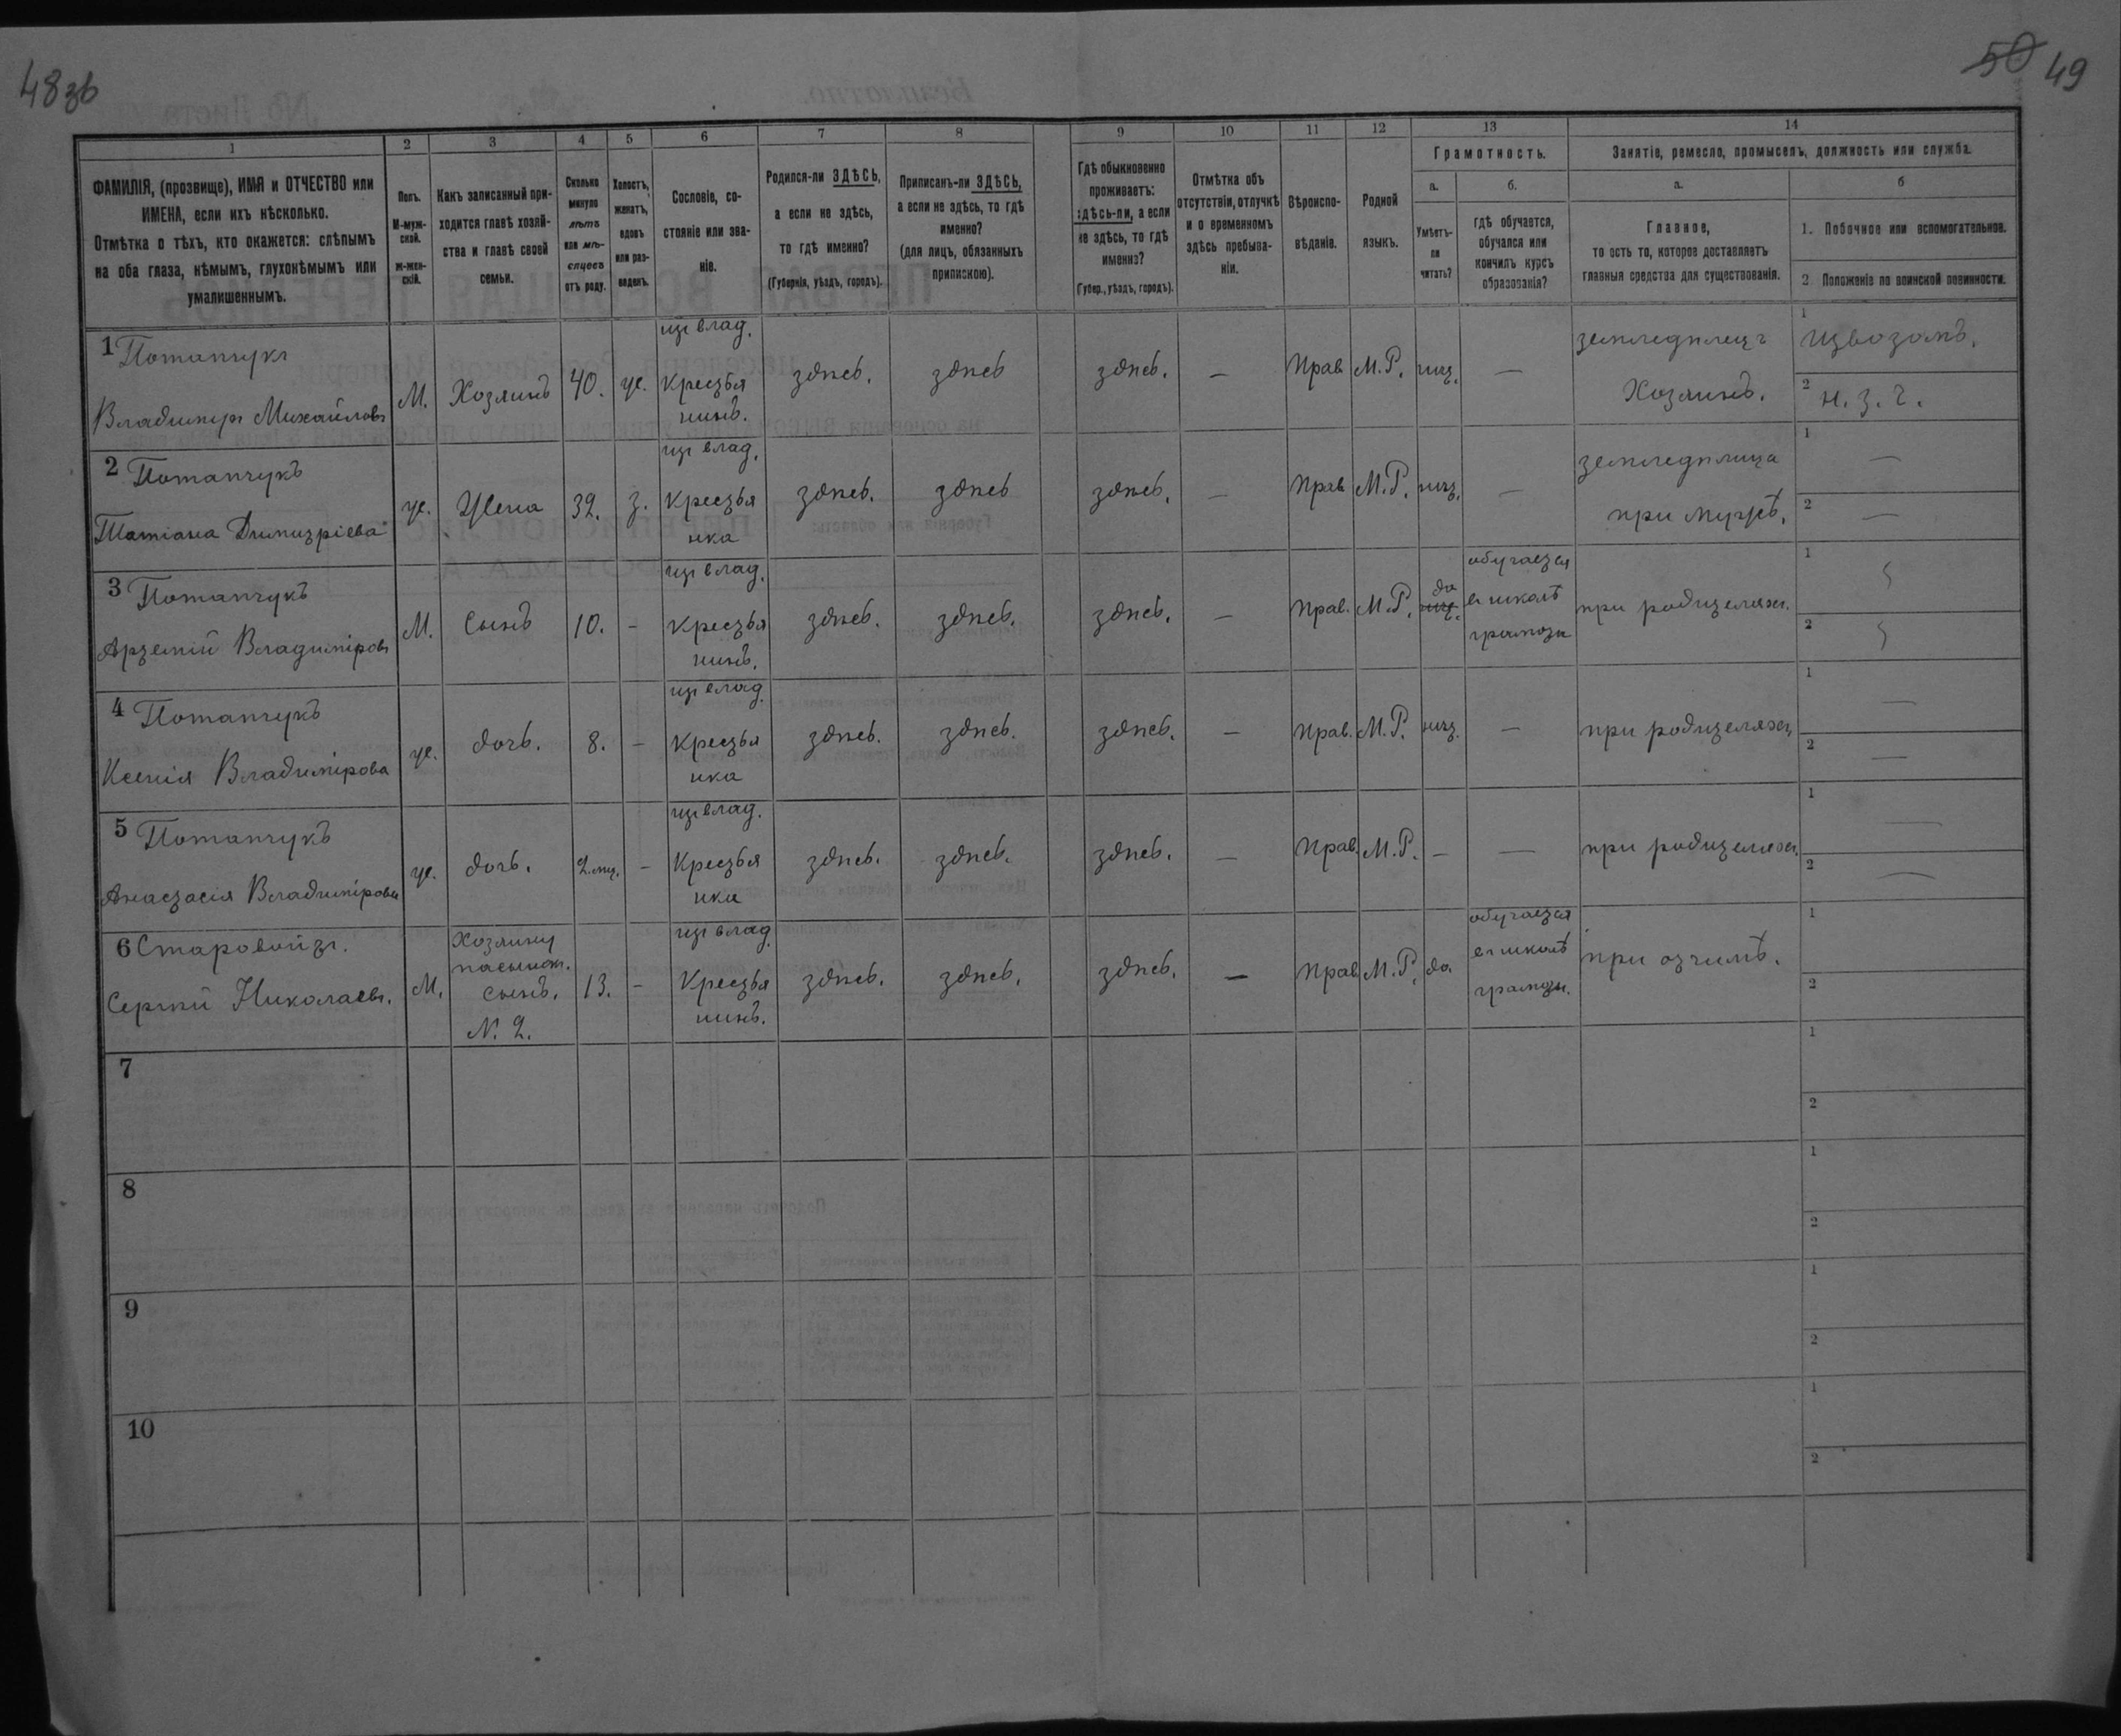 48зв
50 49
1
2
3
4
5
6
7
8
9
10
11
12
13
14
ФАМИЛІЯ, (прозвище), ИМЯ и ОТЧЕСТВО или
ИМЕНА, если ихъ нѣсколько.
Отмѣтка о тѣхъ, кто окажется: слѣпымъ
на оба глаза, нѣмымъ, глухонѣмымъ или
умалишеннымъ.
Полъ.
М-муж-
ской.
Ж-жен-
скій.
Какъ записанный при-
ходится главѣ хозяй-
ства и главѣ своей
семьи.
Сколько
минуло
лѣтъ
или мѣ-
сяцевъ
отъ роду.
Холостъ,
женатъ,
вдовъ
или раз-
веденъ.
Сословіе, со-
стояніе или зва-
ніе.
Родился-ли ЗДѢСЬ,
а если не здѣсь,
то гдѣ именно?
(Губернія, уѣздъ, городъ).
Приписанъ-ли ЗДѢСЬ,
а если не здѣсь, то гдѣ
именно?
(для лицъ, обязанныхъ
припискою).
Гдѣ обыкновенно
проживаетъ:
здѣсь-ли, а если
не здѣсь, то гдѣ
именно?
(Губер., уѣздъ, городъ).
Отмѣтка объ
отсутствіи, отлучкѣ
и о временномъ
здѣсь пребыва-
ніи.
Вѣроиспо-
вѣданіе.
Родной
языкъ.
Грамотность.
а.
Умѣетъ-
ли
читать?
б.
гдѣ обучается,
обучался или
кончилъ курсъ
образованія?
Занятіе, ремесло, промыселъ, должность или служба.
а.
Главное,
то есть то, которое доставляетъ
главныя средства для существованія.
б
1. Побочное или вспомогательное.
2 Положеніе по воинской повинности.
1 Потапчукъ
Владимиръ Михайловъ
М.
Хозяинъ
40.
ж.
влад.
Крестья
нинъ.
здѣсь.
здѣсь
здѣсь.
—
Прав
М.Р.
нѣт.
—
земледѣлецъ
Хозяинъ.
1 Извозомъ.
2 н. з. ч.
2 Потапчукъ
Татіана Димитріева
ж.
Жена
32.
з.
влад.
Крестья
нка
здѣсь.
здѣсь
здѣсь.
—
Прав
М.Р.
нѣт.
—
земледѣлица
при мужѣ.
1 —
2 —
3 Потапчукъ
Артемій Владиміровъ
М.
Сынъ
10.
-
влад.
Крестья
нинъ.
здѣсь.
здѣсь.
здѣсь.
—
Прав.
М.Р.
да
нѣт.
обучается
въ школѣ
грамоты
при родителяхъ.
1
2
4 Потапчукъ
Ксенія Владимірова
ж.
дочь.
8.
-
влад.
Крестья
нка
здѣсь.
здѣсь.
здѣсь.
—
Прав.
М.Р.
нѣт.
—
при родителяхъ
1 —
2 —
5 Потапчукъ
Анастасія Владимірова
ж.
дочь.
2.мц.
-
влад.
Крестья
нка
здѣсь.
здѣсь.
здѣсь.
—
Прав.
М.Р.
-
—
при родителяхъ.
1 —
2 —
6 Старовойтъ.
Сергѣй Николаевъ.
М.
Хозяину
пасынокъ.
сынъ.
N. 2.
13.
-
влад.
Крестья
нинъ.
здѣсь.
здѣсь.
здѣсь.
—
Прав.
М.Р.
да.
обучается
въ школѣ
грамоты.
при отчимѣ.
1
2
7
1
2
8
1
2
9
1
2
10
1
2